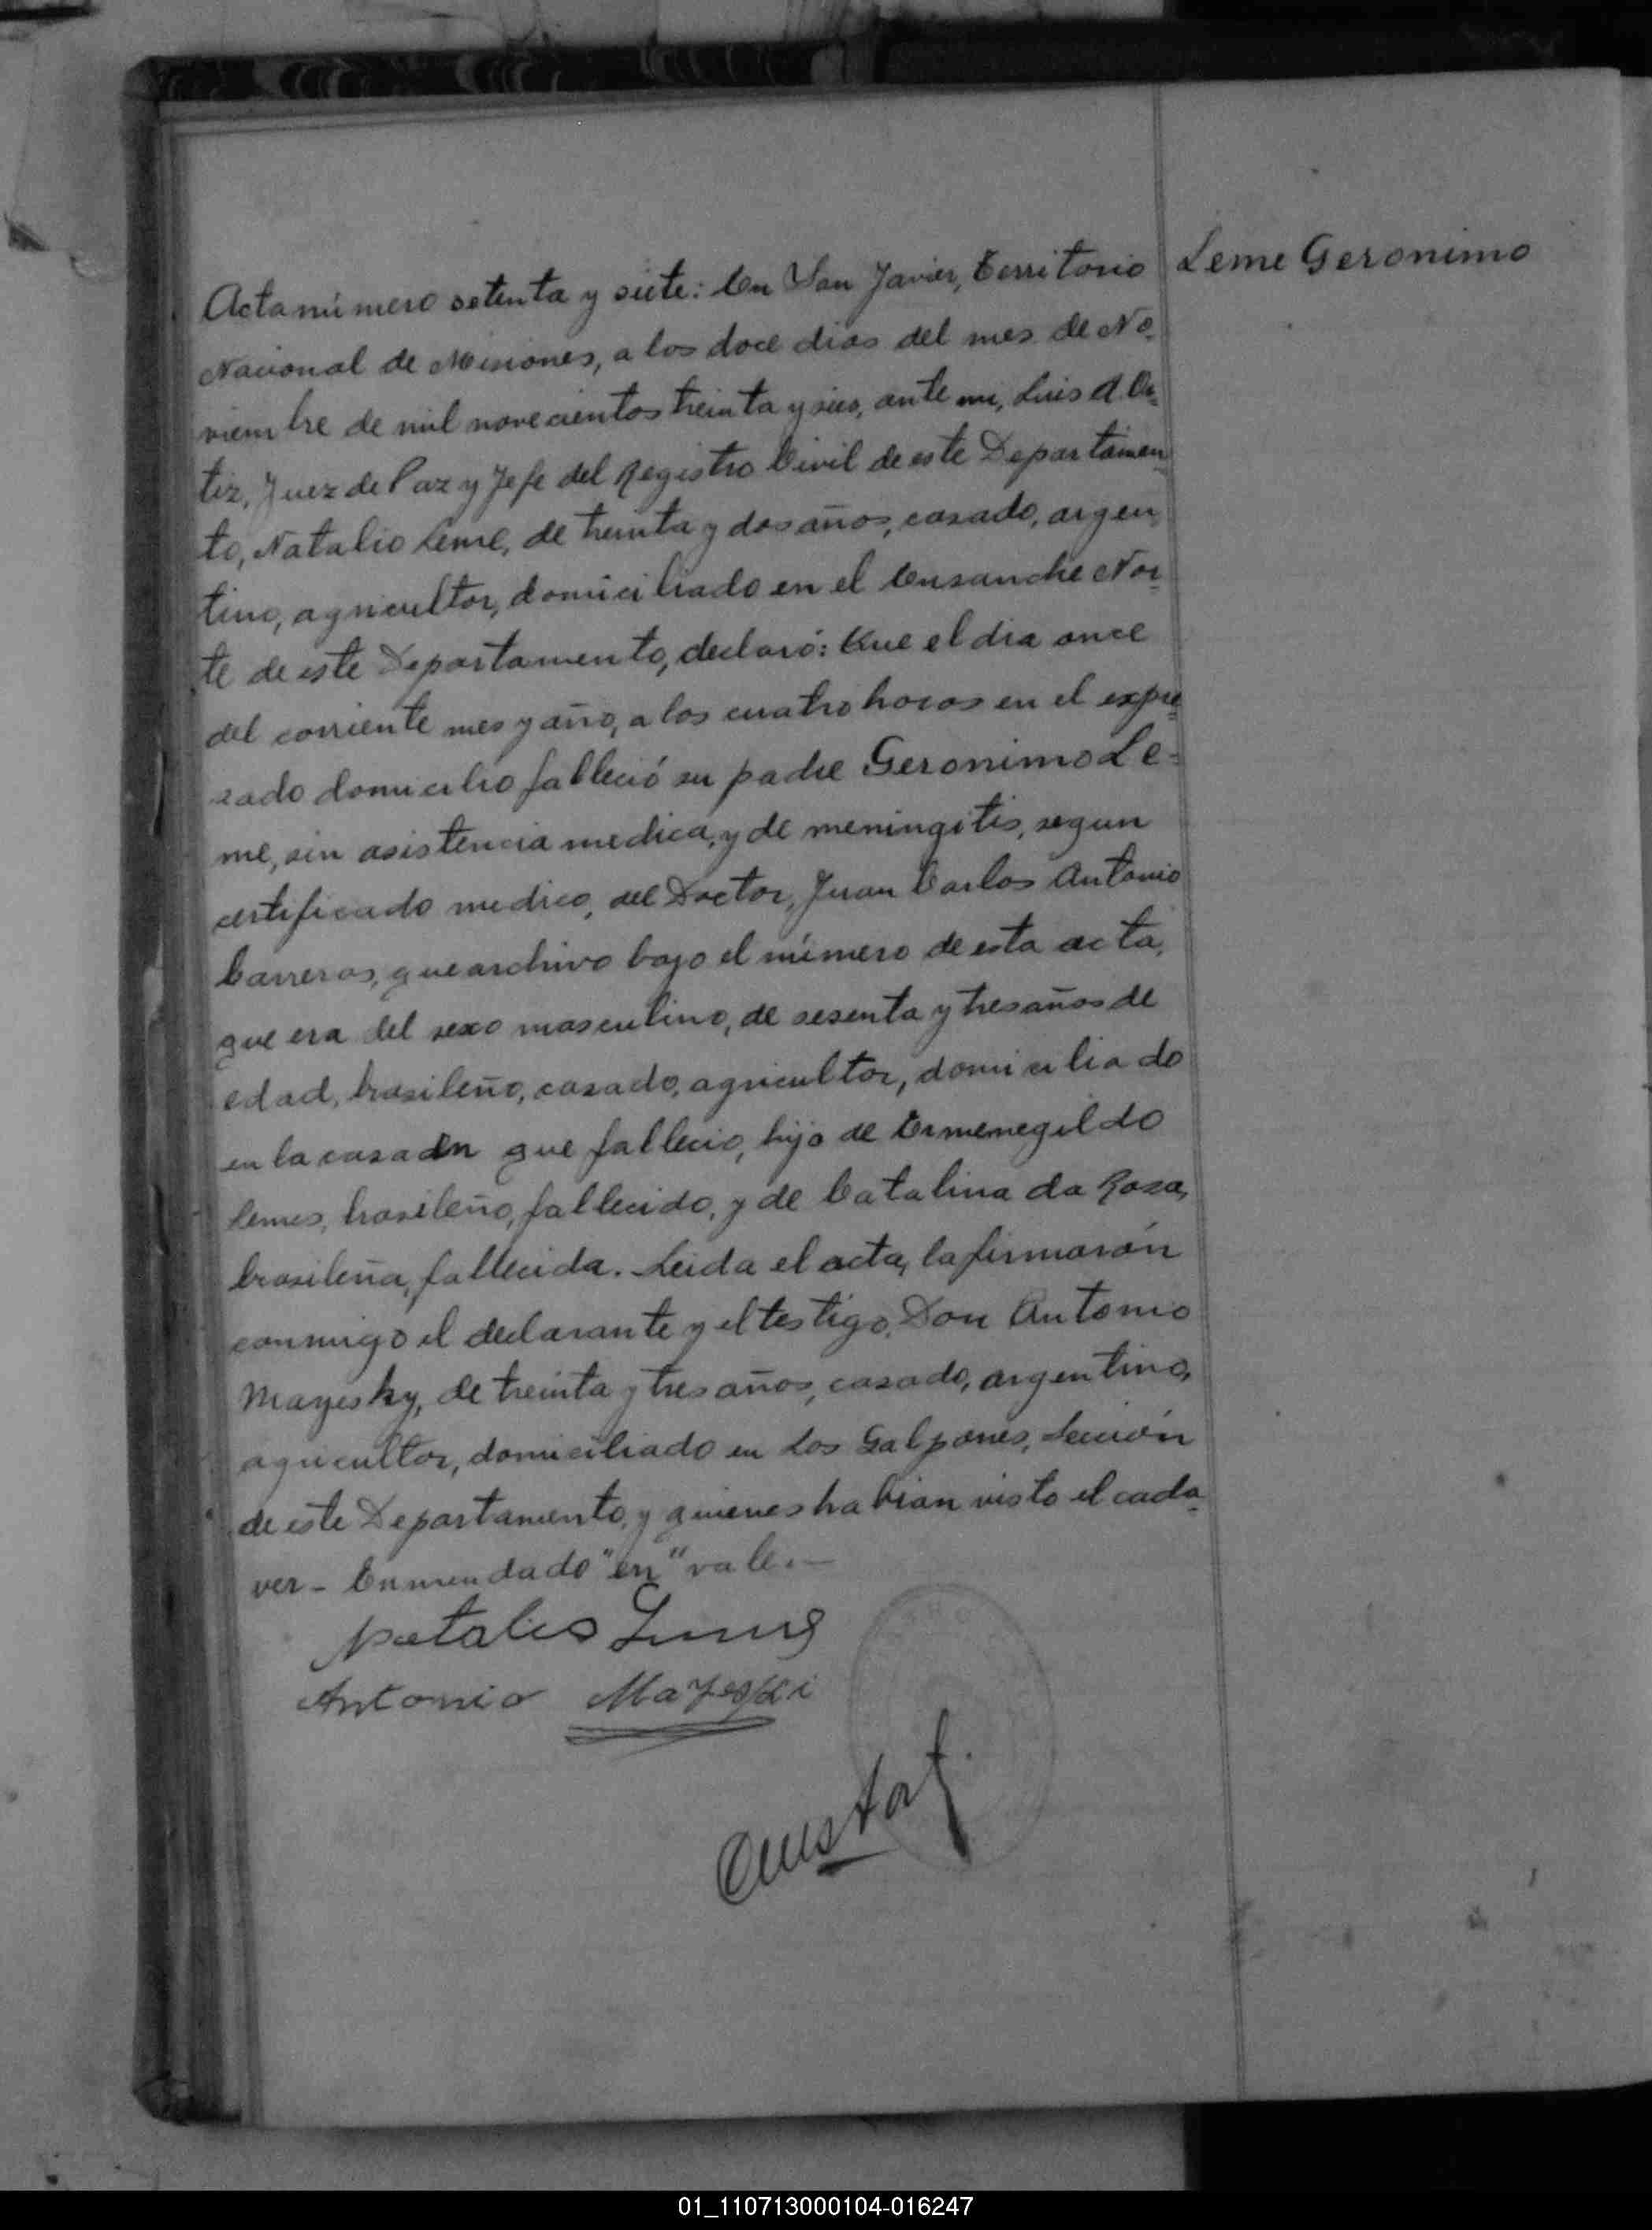 Leme Geronimo
Acta número setenta y siete: En San Javier, Territorio
Nacional de Misiones, a los doce dias del mes de No-
viembre de mil novecientos treinta y seis, ante mi, Luis A. Or-
tiz, Juez de Paz y Jefe del Registro Civil de este Departamen-
to, Natalio Leme, de treinta y dos años, casado, argen-
tino, agricultor, domiciliado en el Ensanche Nor-
te de este Departamento, declaró: Que el dia once
del corriente mes y año, a las cuatro horas en el expre-
sado domicilio falleció su padre Geronimo Le-
me, sin asistencia medica, y de meningitis, segun
certificado medico, del Doctor, Juan Carlos Antonio
Carreras, que archivo bajo el número de esta acta,
que era del sexo masculino, de sesenta y tres años de
edad, brasileño, casado, agricultor, domiciliado
en la casa en que fallecio, hijo de Ermenegildo
Lemes, brasileño, fallecido, y de Catalina da Rosa,
brasileña, fallecida. Leida el acta, la firmarón
conmigo el declarante y el testigo, Don Antonio
Mayesky, de treinta y tres años, casado, argentino,
agricultor, domiciliado en Los Galpones, Sección
de este Departamento, y quienes habian visto el cada-
ver - Enmendado "en" vale.—
Natalio Lemes
Antonio Mayeski
01_110713000104-016247